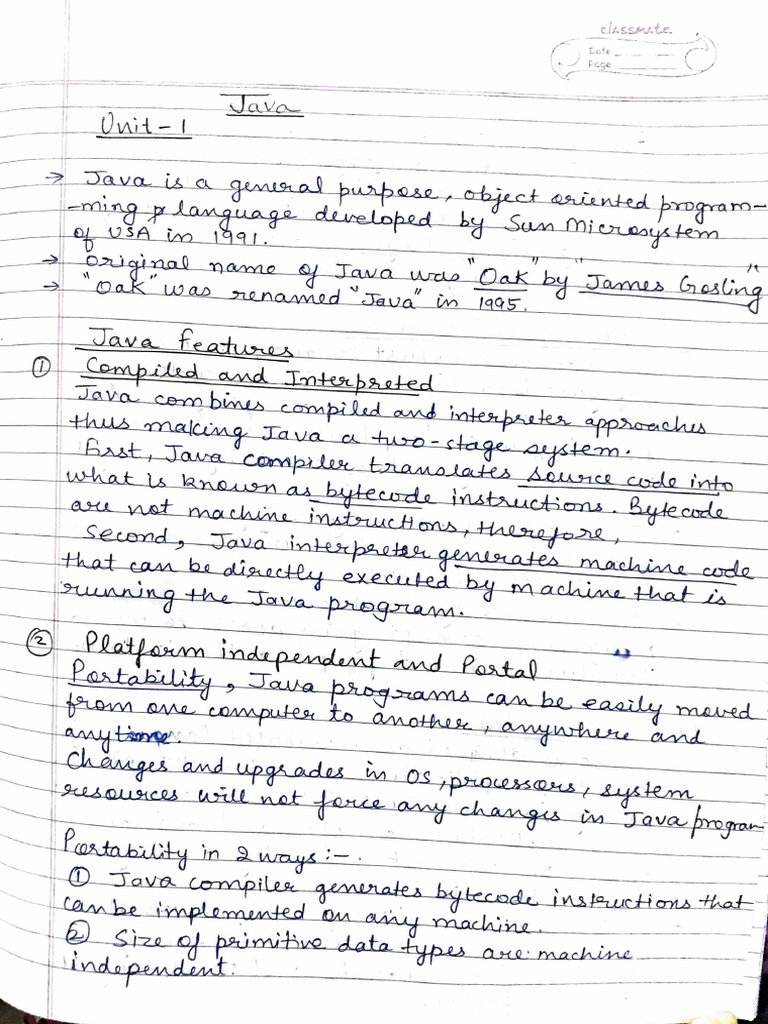 classmate
Date
Page
Java
Unit - 1
→ Java is a general purpose, object oriented program-
-ming language developed by Sun Microsystem
of USA in 1991.
→ Original name of Java was "Oak" by "James Gosling"
→ "Oak" was renamed "Java" in 1995.
Java features
① Compiled and Interpreted
Java combines compiled and interpreter approaches
thus making Java a two-stage system.
First, Java compiler translates source code into
what is known as bytecode instructions. Bytecode
are not machine instructions, therefore,
Second, Java interpreter generates machine code
that can be directly executed by machine that is
running the Java program.
② Platform independent and Portal
Portability, Java programs can be easily moved
from one computer to another, anywhere and
anytime.
Changes and upgrades in OS, processors, system
resources will not force any changes in Java program
Portability in 2 ways :-
① Java compiler generates bytecode instructions that
can be implemented on any machine.
② Size of primitive data types are machine
independent.